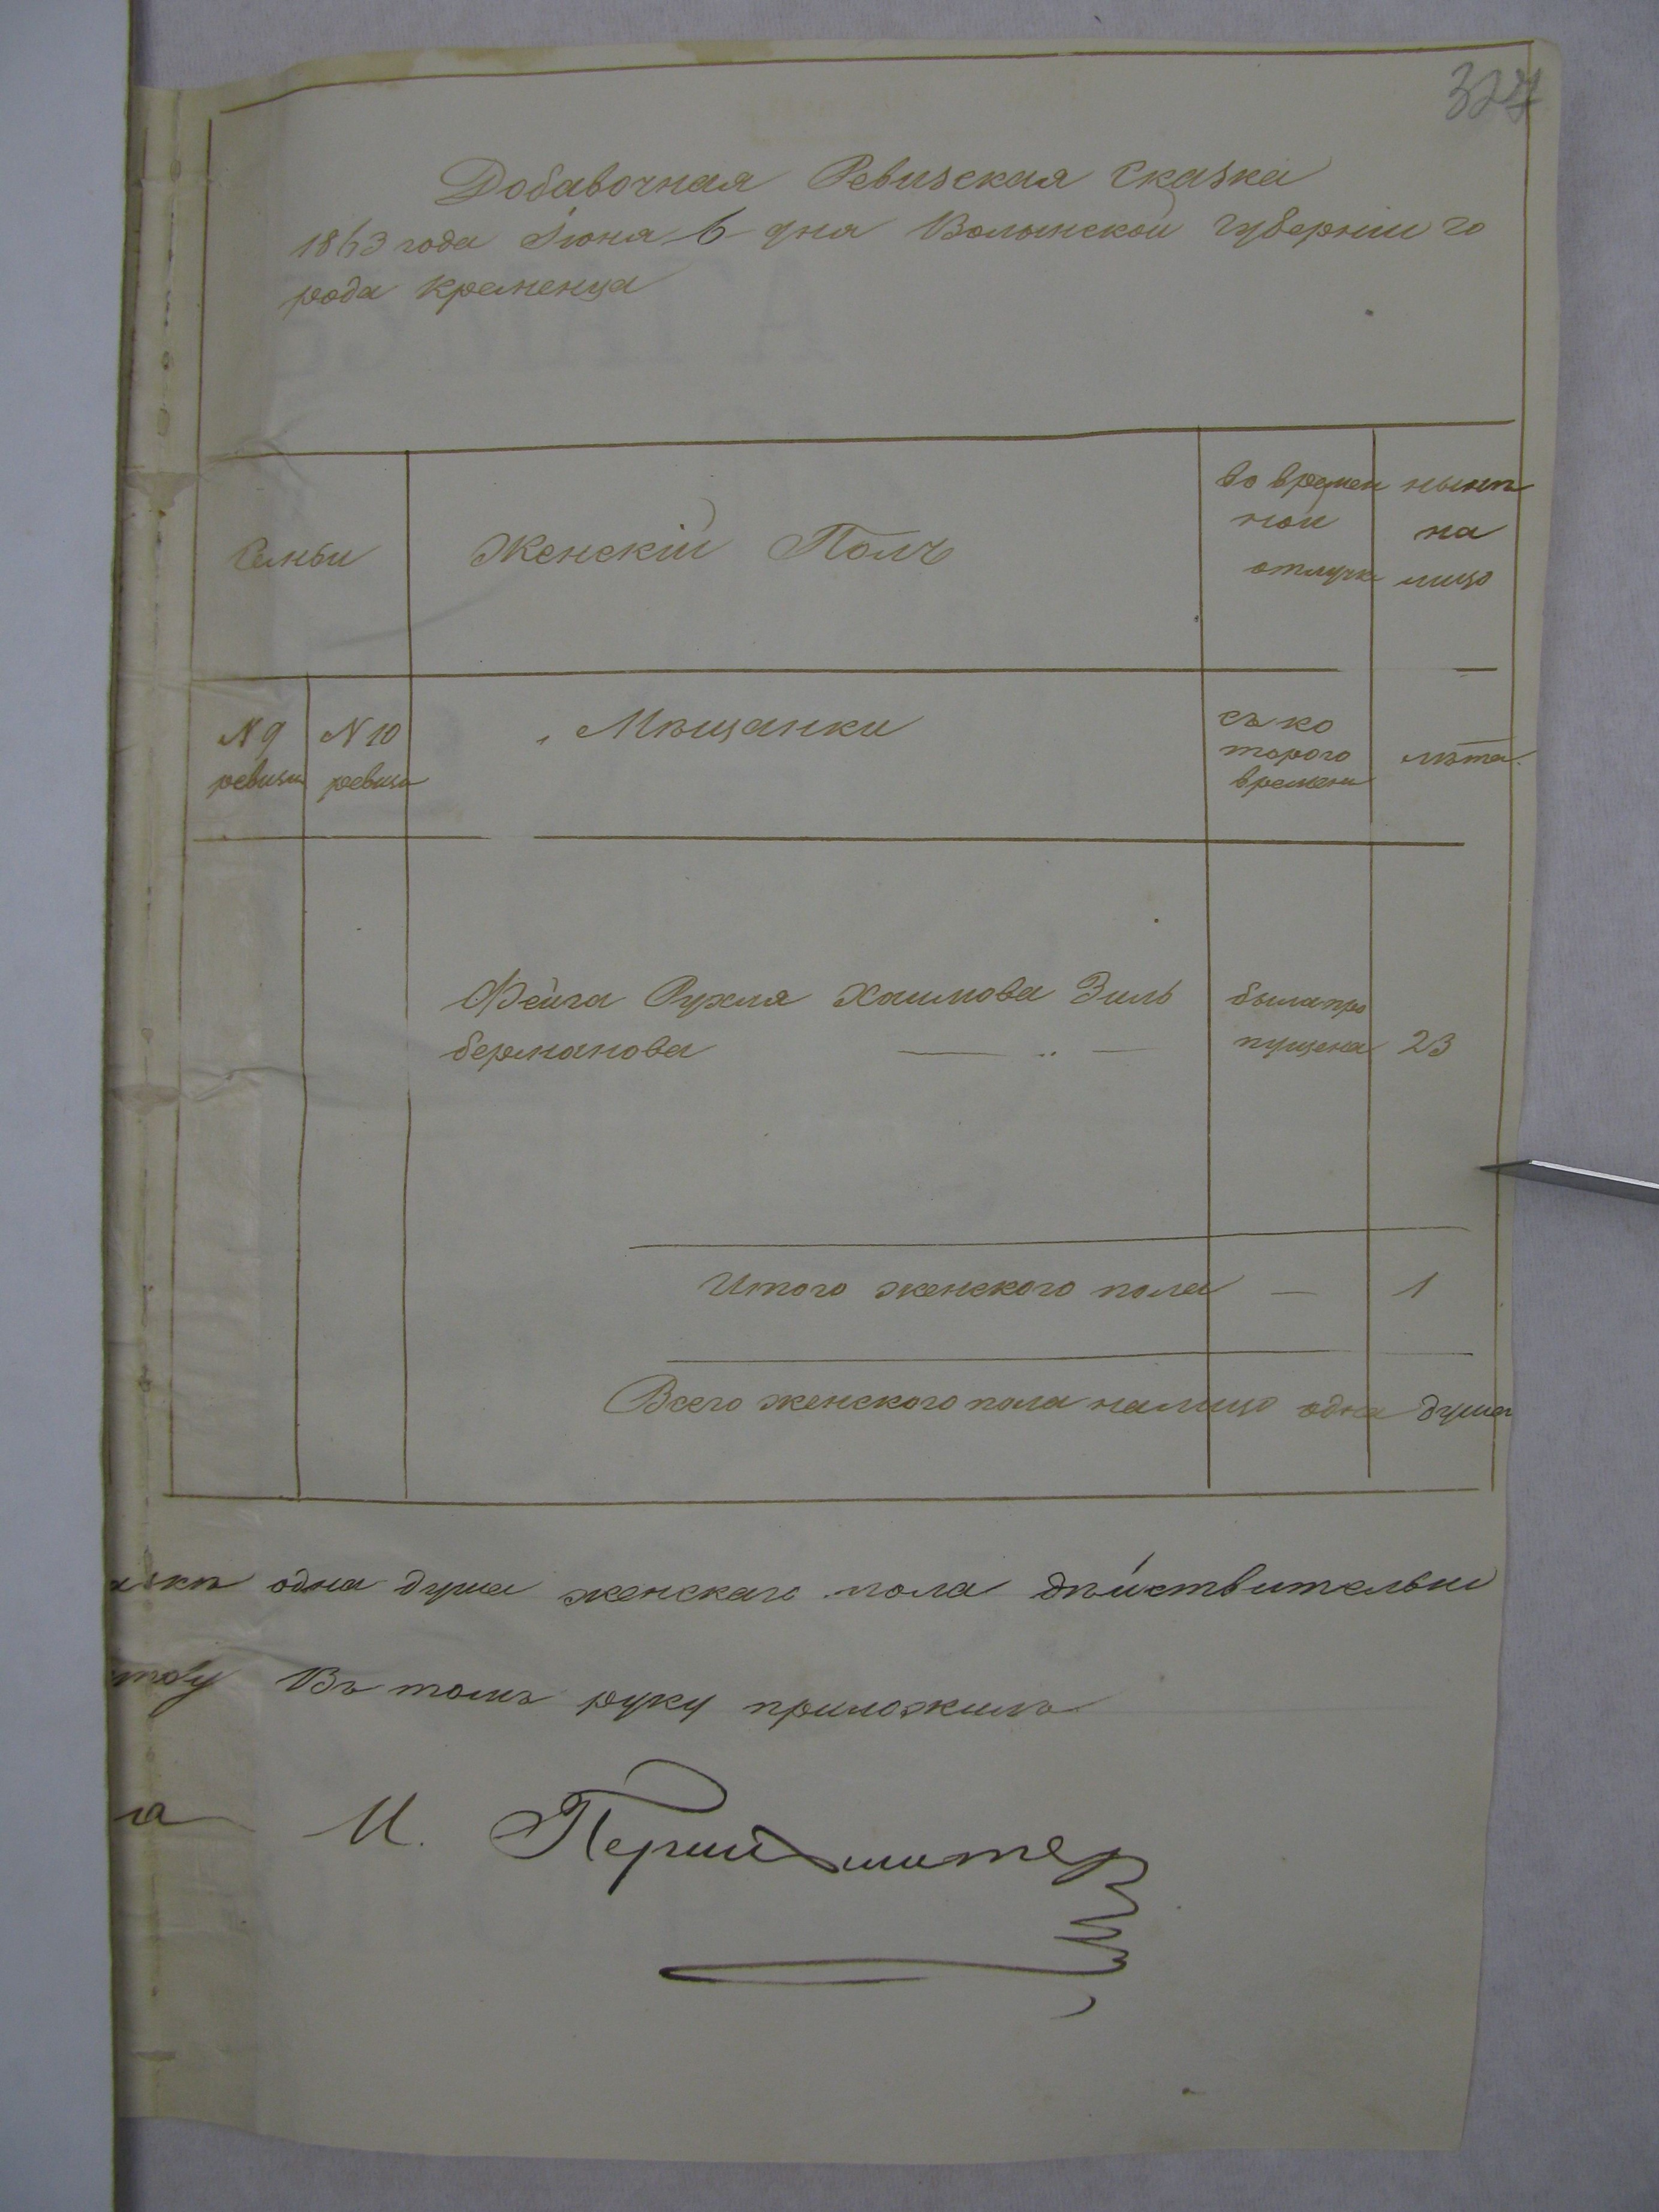 327
Добавочная Ревизская Сказка
1863 года Іюня 6 дня Волынской Губерніи го
рода Кременца
Семьи
Женскій Полъ
во времен
ной
отлучкѣ
нынѣ
на
лицо
N 9
ревизіи
N 10
ревизіи
Мѣщанки
съ ко
тораго
времени
лѣта.
Фейга Рухля Хаимова Зиль
бермановa
была про
пущена
23
Итого женского пола — 1
Всего женского пола на лицо одна душа
одна душа женскаго пола дѣйствительно
Въ томъ руку приложилъ
га